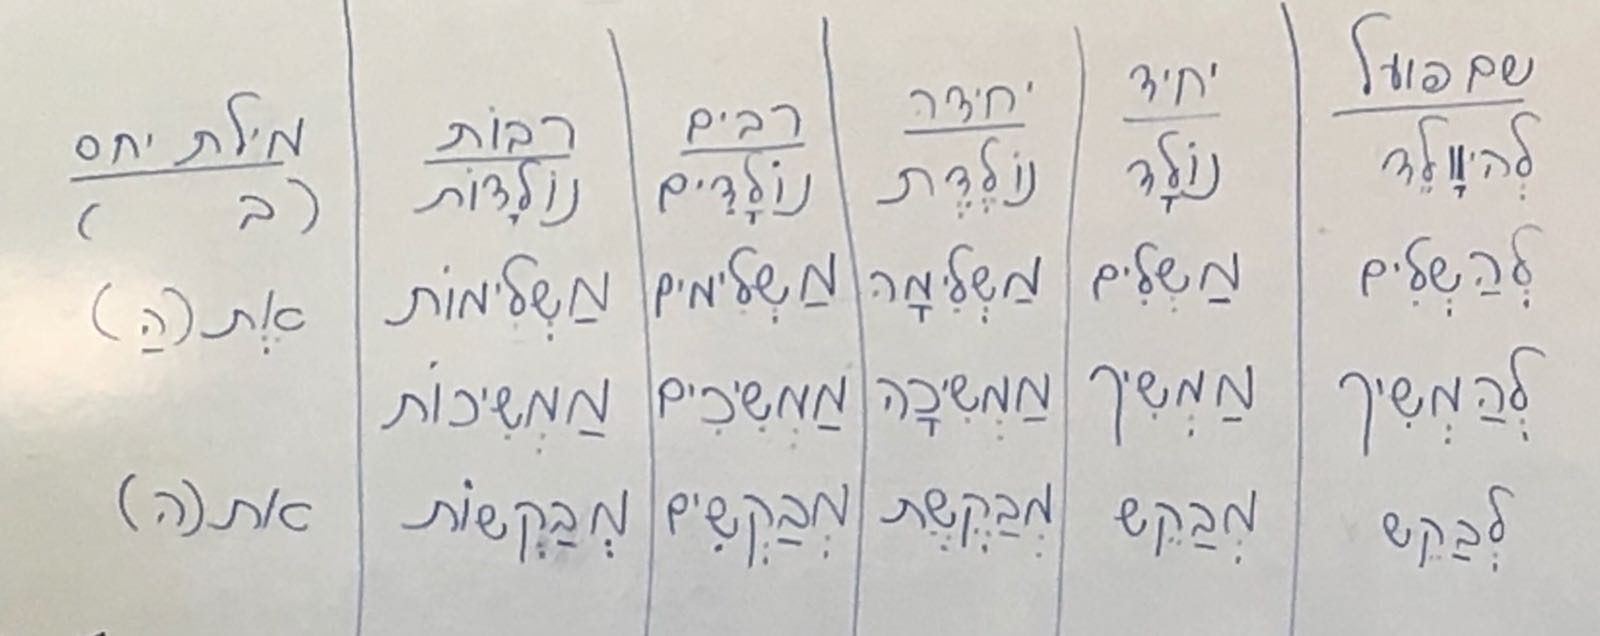 שם פועל יחיד יחידה רבים רבות מילת יחס
לְהיוָּלֵד נוֹלָד נוֹלֶדֶת נוֹלָדִים נוֹלָדוֹת (ב )
לְהַשְלִים מַשְלִים מַשְלִימָה מַשְלִימים מַשְלִימוֹת אֶת (הַ)
לְהַמְשִיך מַמְשִיך מַמְשִיכָה מַמְשִיכִים מַמְשִיכוֹת
לְבַקֵש מְבַקֵש מְבַקֶשֶת מְבַקְשִים מְבַקְשוֹת את (ה)